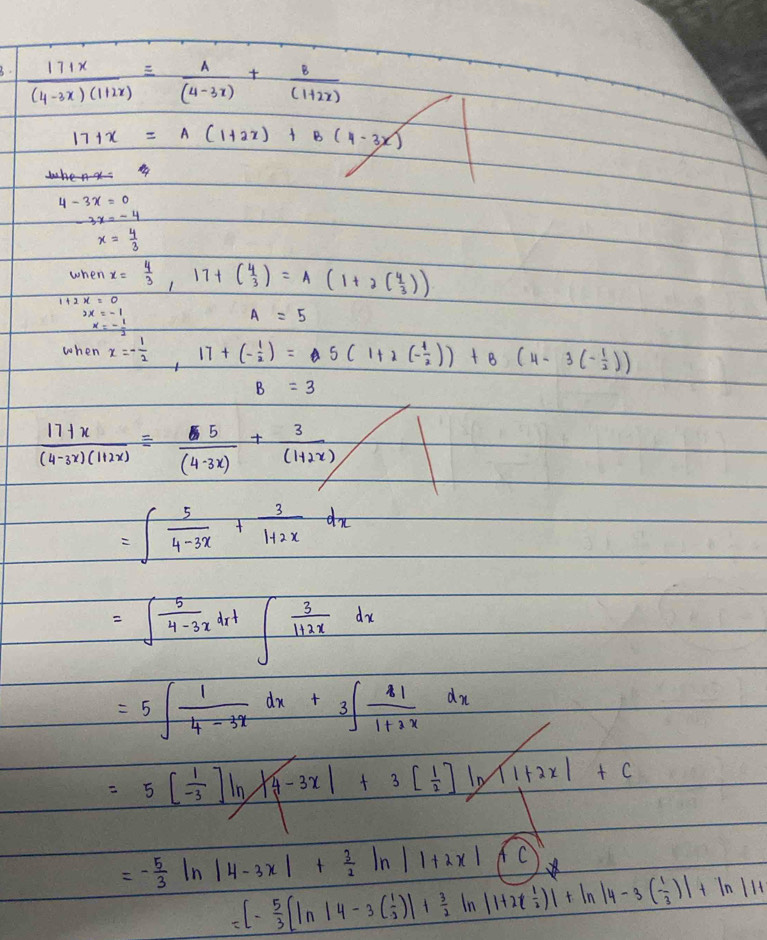 3. \frac{17+x}{(4-3x)(1+2x)} ≡ \frac{A}{(4-3x)} + \frac{B}{(1+2x)}
17+x = A(1+2x) + B(4-3x)
when x =
4-3x=0
-3x=-4
x = \frac{4}{3}
when x = \frac{4}{3}, 17+(\frac{4}{3}) = A(1+2(\frac{4}{3}))
1+2x=0
2x=-1
x=-\frac{1}{2}
A = 5
when x=-\frac{1}{2}, 17+(-\frac{1}{2}) = 5(1+2(-\frac{1}{2})) + B(4-3(-\frac{1}{2}))
B = 3
\frac{17+x}{(4-3x)(1+2x)} ≡ \frac{5}{(4-3x)} + \frac{3}{(1+2x)}
= ∫ \frac{5}{4-3x} + \frac{3}{1+2x} dx
= ∫ \frac{5}{4-3x} dx + ∫ \frac{3}{1+2x} dx
= 5 ∫ \frac{1}{4-3x} dx + 3 ∫ \frac{1}{1+2x} dx
= 5[\frac{1}{-3}] ln|4-3x| + 3[\frac{1}{2}] ln|1+2x| + C
= -\frac{5}{3} ln|4-3x| + \frac{3}{2} ln|1+2x| + C
= [-\frac{5}{3}[ln|4-3(\frac{1}{3})| + \frac{3}{2} ln|1+2(\frac{1}{3})| + ln|4-3(\frac{1}{3})| + ln|1+